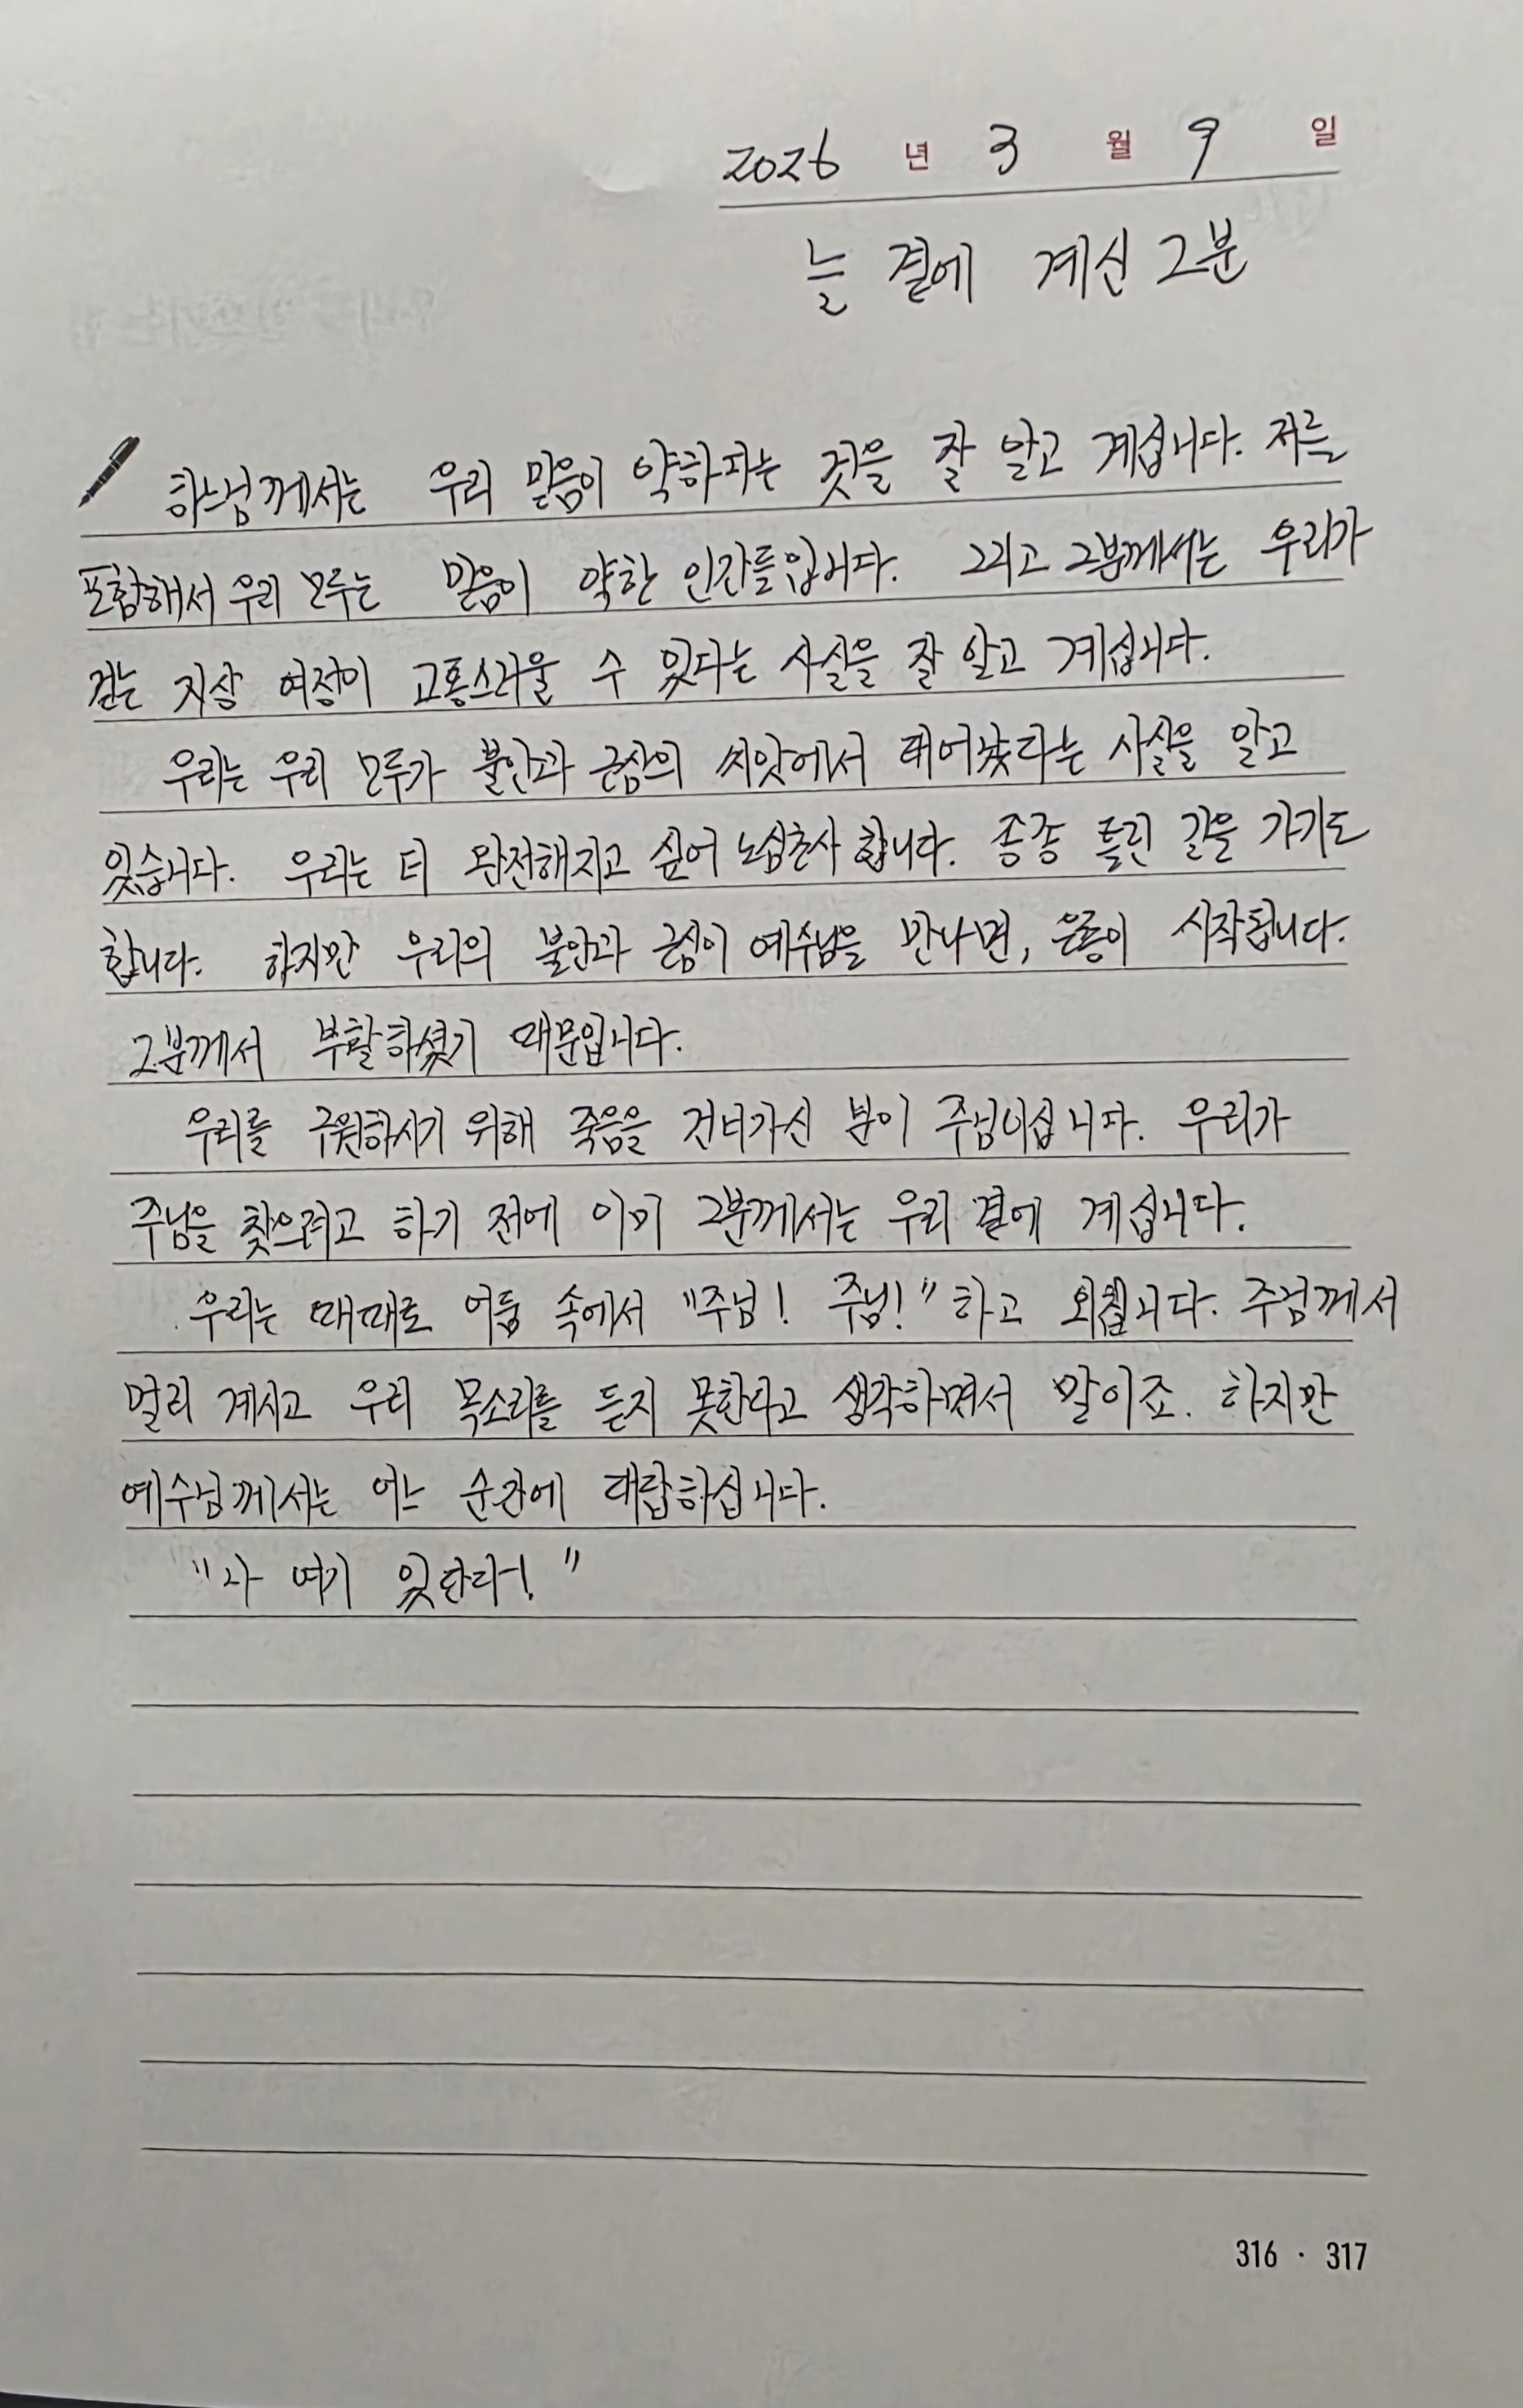 2026 년 3 월 9 일
늘 곁에 계신 그분
하느님께서는 우리 믿음이 약하다는 것을 잘 알고 계십니다. 저를
포함해서 우리 모두는 믿음이 약한 인간들입니다. 그리고 그분께서는 우리가
걷는 지상 여정이 고통스러울 수 있다는 사실을 잘 알고 계십니다.
우리는 우리 모두가 불안과 근심의 씨앗에서 태어났다는 사실을 알고
있습니다. 우리는 더 완전해지고 싶어 노심초사 합니다. 종종 틀린 길을 가기도
합니다. 하지만 우리의 불안과 근심이 예수님을 만나면, 은총이 시작됩니다.
그분께서 부활하셨기 때문입니다.
우리를 구원하시기 위해 죽음을 건너가신 분이 주님이십니다. 우리가
주님을 찾으려고 하기 전에 이미 그분께서는 우리 곁에 계십니다.
우리는 때때로 어둠 속에서 "주님! 주님!" 하고 외칩니다. 주님께서
멀리 계시고 우리 목소리를 듣지 못한다고 생각하면서 말이죠. 하지만
예수님께서는 어느 순간에 대답하십니다.
"나 여기 있단다!"
316 · 317